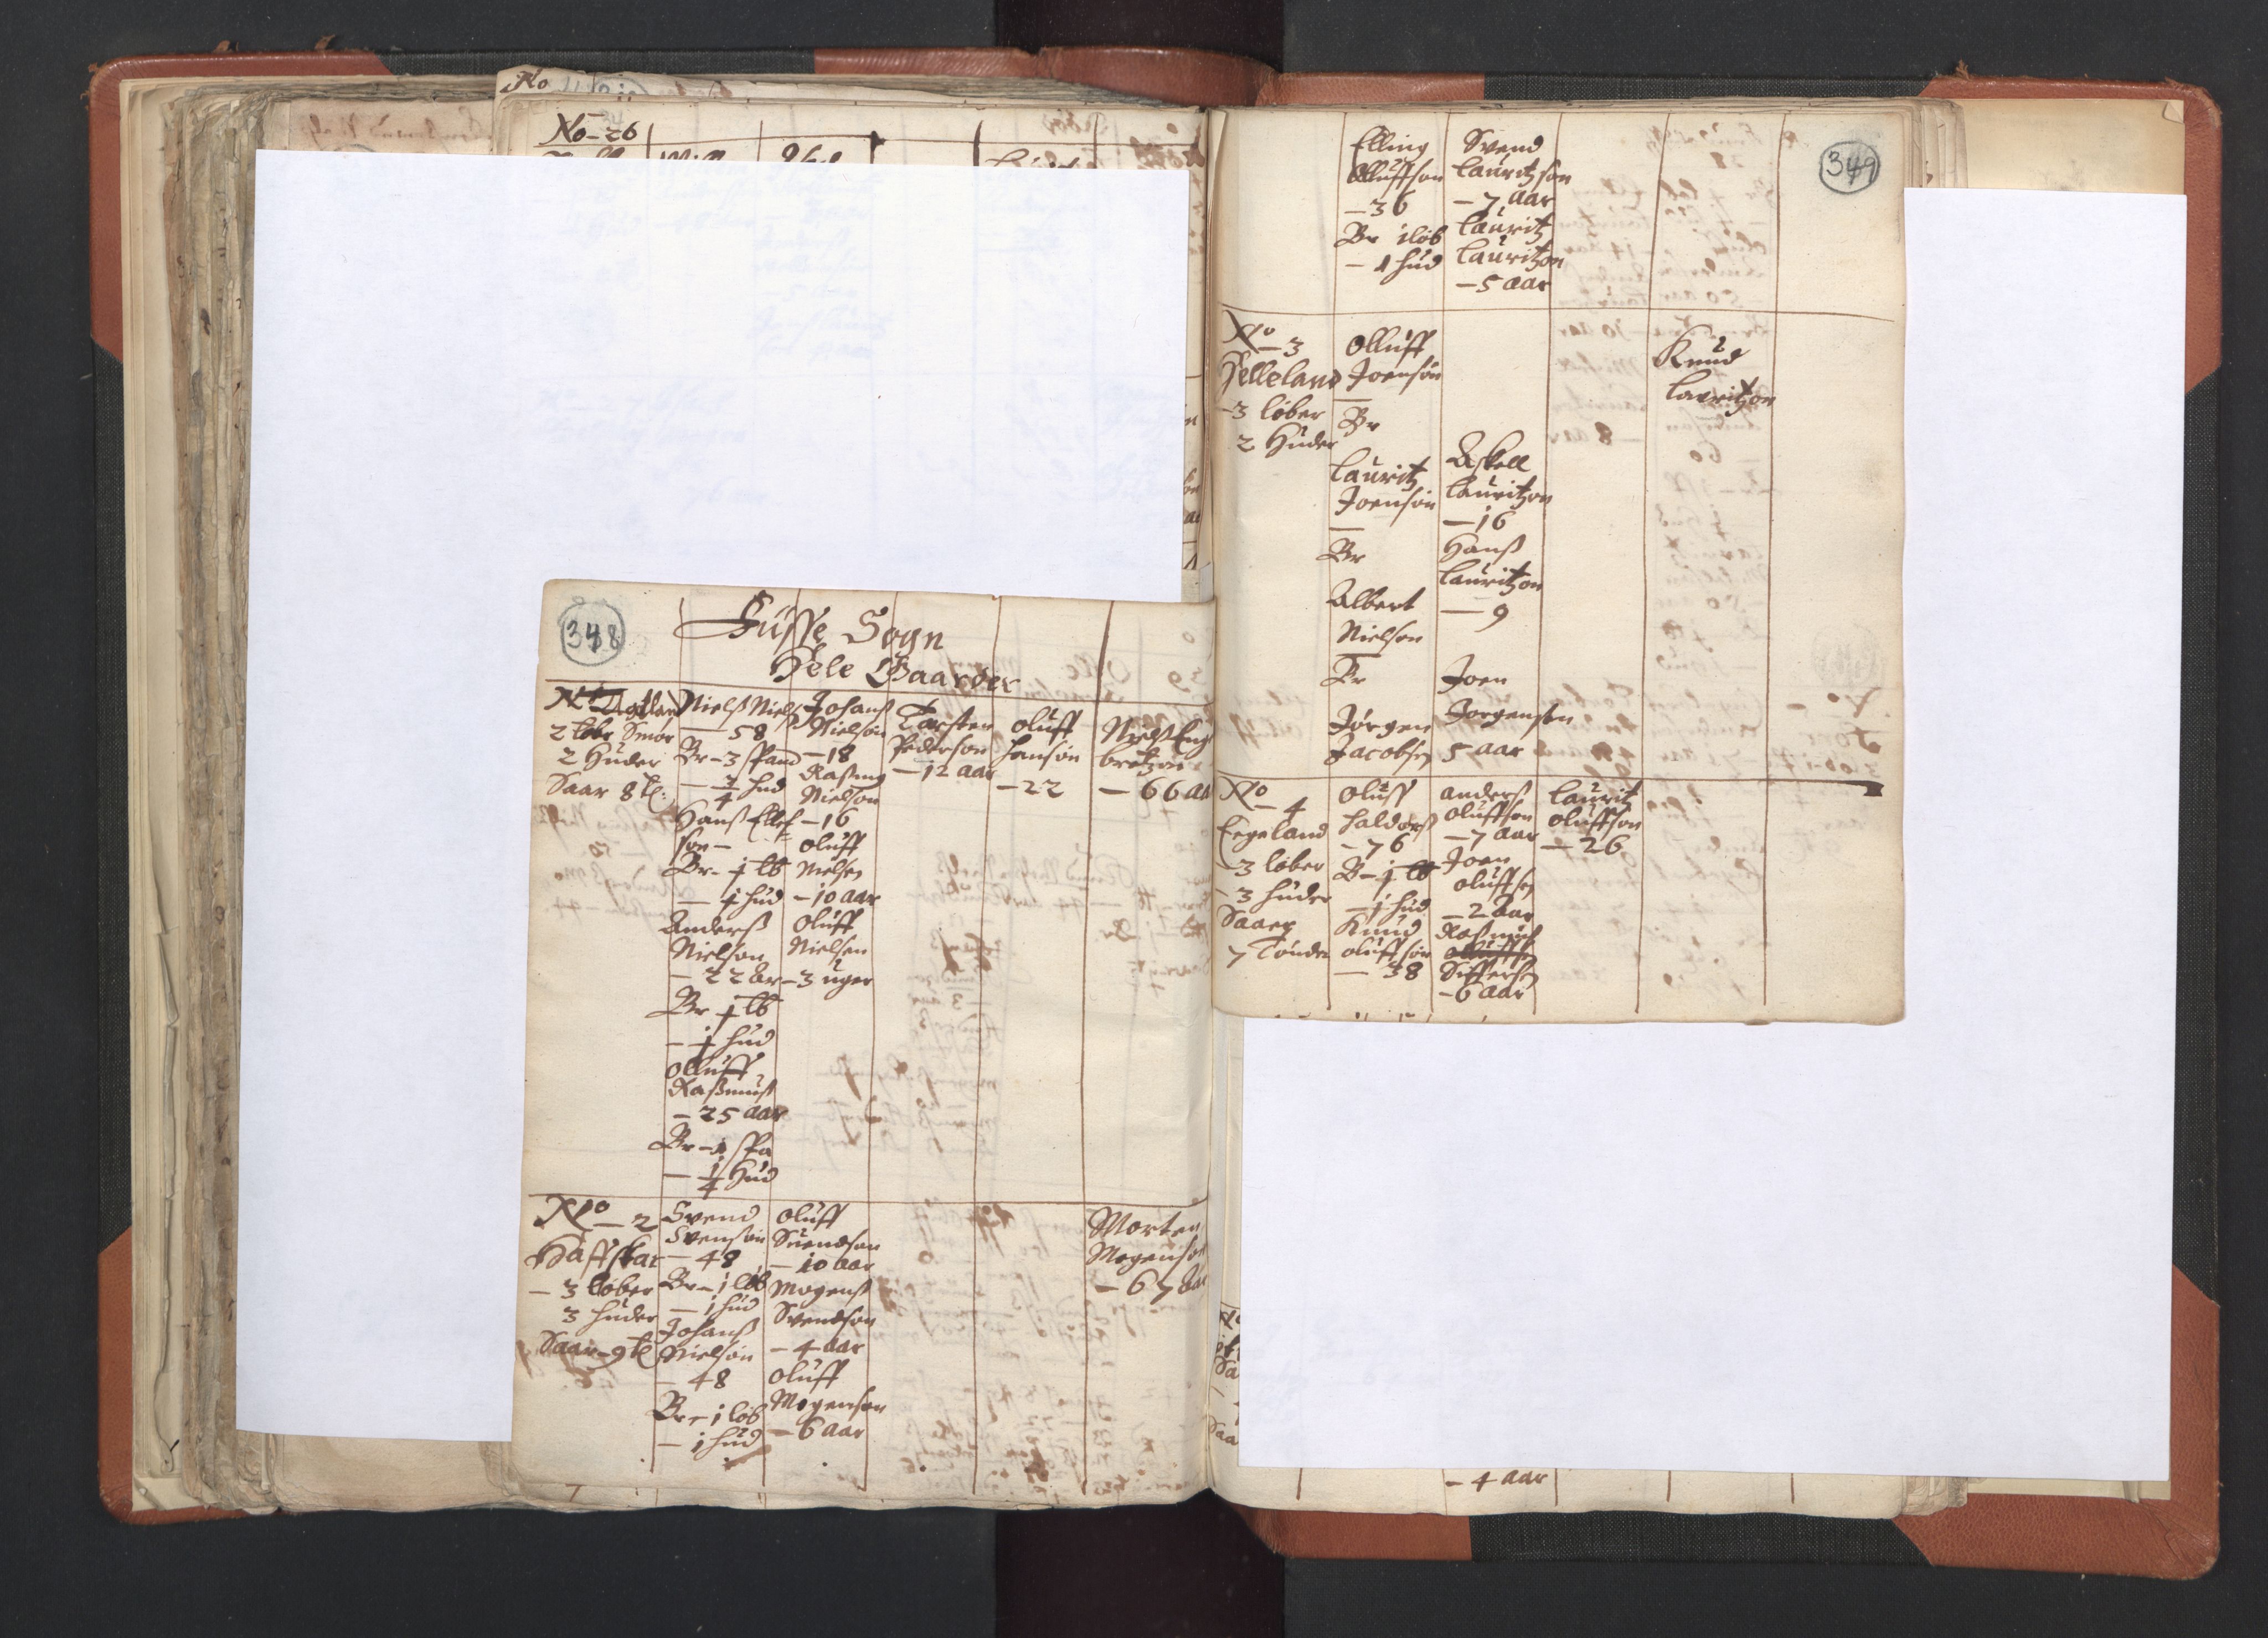 No
No-26
348
Füsse Sogn
Hele Gaarder
No 1
2 løbr Smør
2 Huder
Saar 8 t:
Nielß Niels
- 58
Br - 3 Span
- 3/4 hud
Hanß Ellef
søn -
Br - 1 lb
- 1 hud
Anderß
Nielsøn
- 22 år
Br 1 lb
- 1 hud
Olluff
Raßmuß
- 25 aar
Br - 1 spa
- 1/4 Hud
Johanß
Nielsøn
- 18
Raßmuß
Nielsøn
- 16
Oluff
Nielsen
- 10 aar
Oluff
Nielsen
- 3 uger
Torsten
Pedersøn
- 12 aar
Oluff
Hansøn
- 22
Nielß Eng
bretzøn
- 66 aa
No - 2
Haffskar
- 3 løber
3 huder
Saar - 9 t
Svend
Svensøn
- 48
Br - 1 løb
- 1 hud
Johanß
Nielsøn
- 48
Br - 1 løb
- 1 hud
Oluff
Suendsøn
- 10 aar
Mogenß
Svendsøn
- 4 aar
Oluff
Mogensøn
- 6 aar
Morten
Mogensø
- 67 aa
349
Elling
Olluffsøn
- 36
Br 1 løb
- 1 hud
Svend
Lauritzsøn
- 7 aar
Lauritz
Lauritzøn
- 5 aar
No - 3
Helleland
- 3 løber
2 Huder
Olluff
Joensøn
Br
Lauritz
Joensøn
Br
Albert
Nielsøn
Br
Jørgen
Jacobsen
Askell
Lauritzøn
- 16
Hanß
Lauritzøn
- 9
Joen
Jørgensøn
5 aar
Knud
Lauritzøn
No - 4
Eegeland
- 3 løber
- 3 huder
Saaer
7 Tønder
Oluff
Haldorß
- 76
B - 1 lb
- 1 hud
Knud
Oluffsøn
- 38
Anderß
Oluffsøn
- 7 aar
Joen
Oluffsen
- 2 aar
Raßmuß
Oluffsen
Siffersen
- 6 aar
Lauritz
Oluffsøn
- 26
- 4 aar